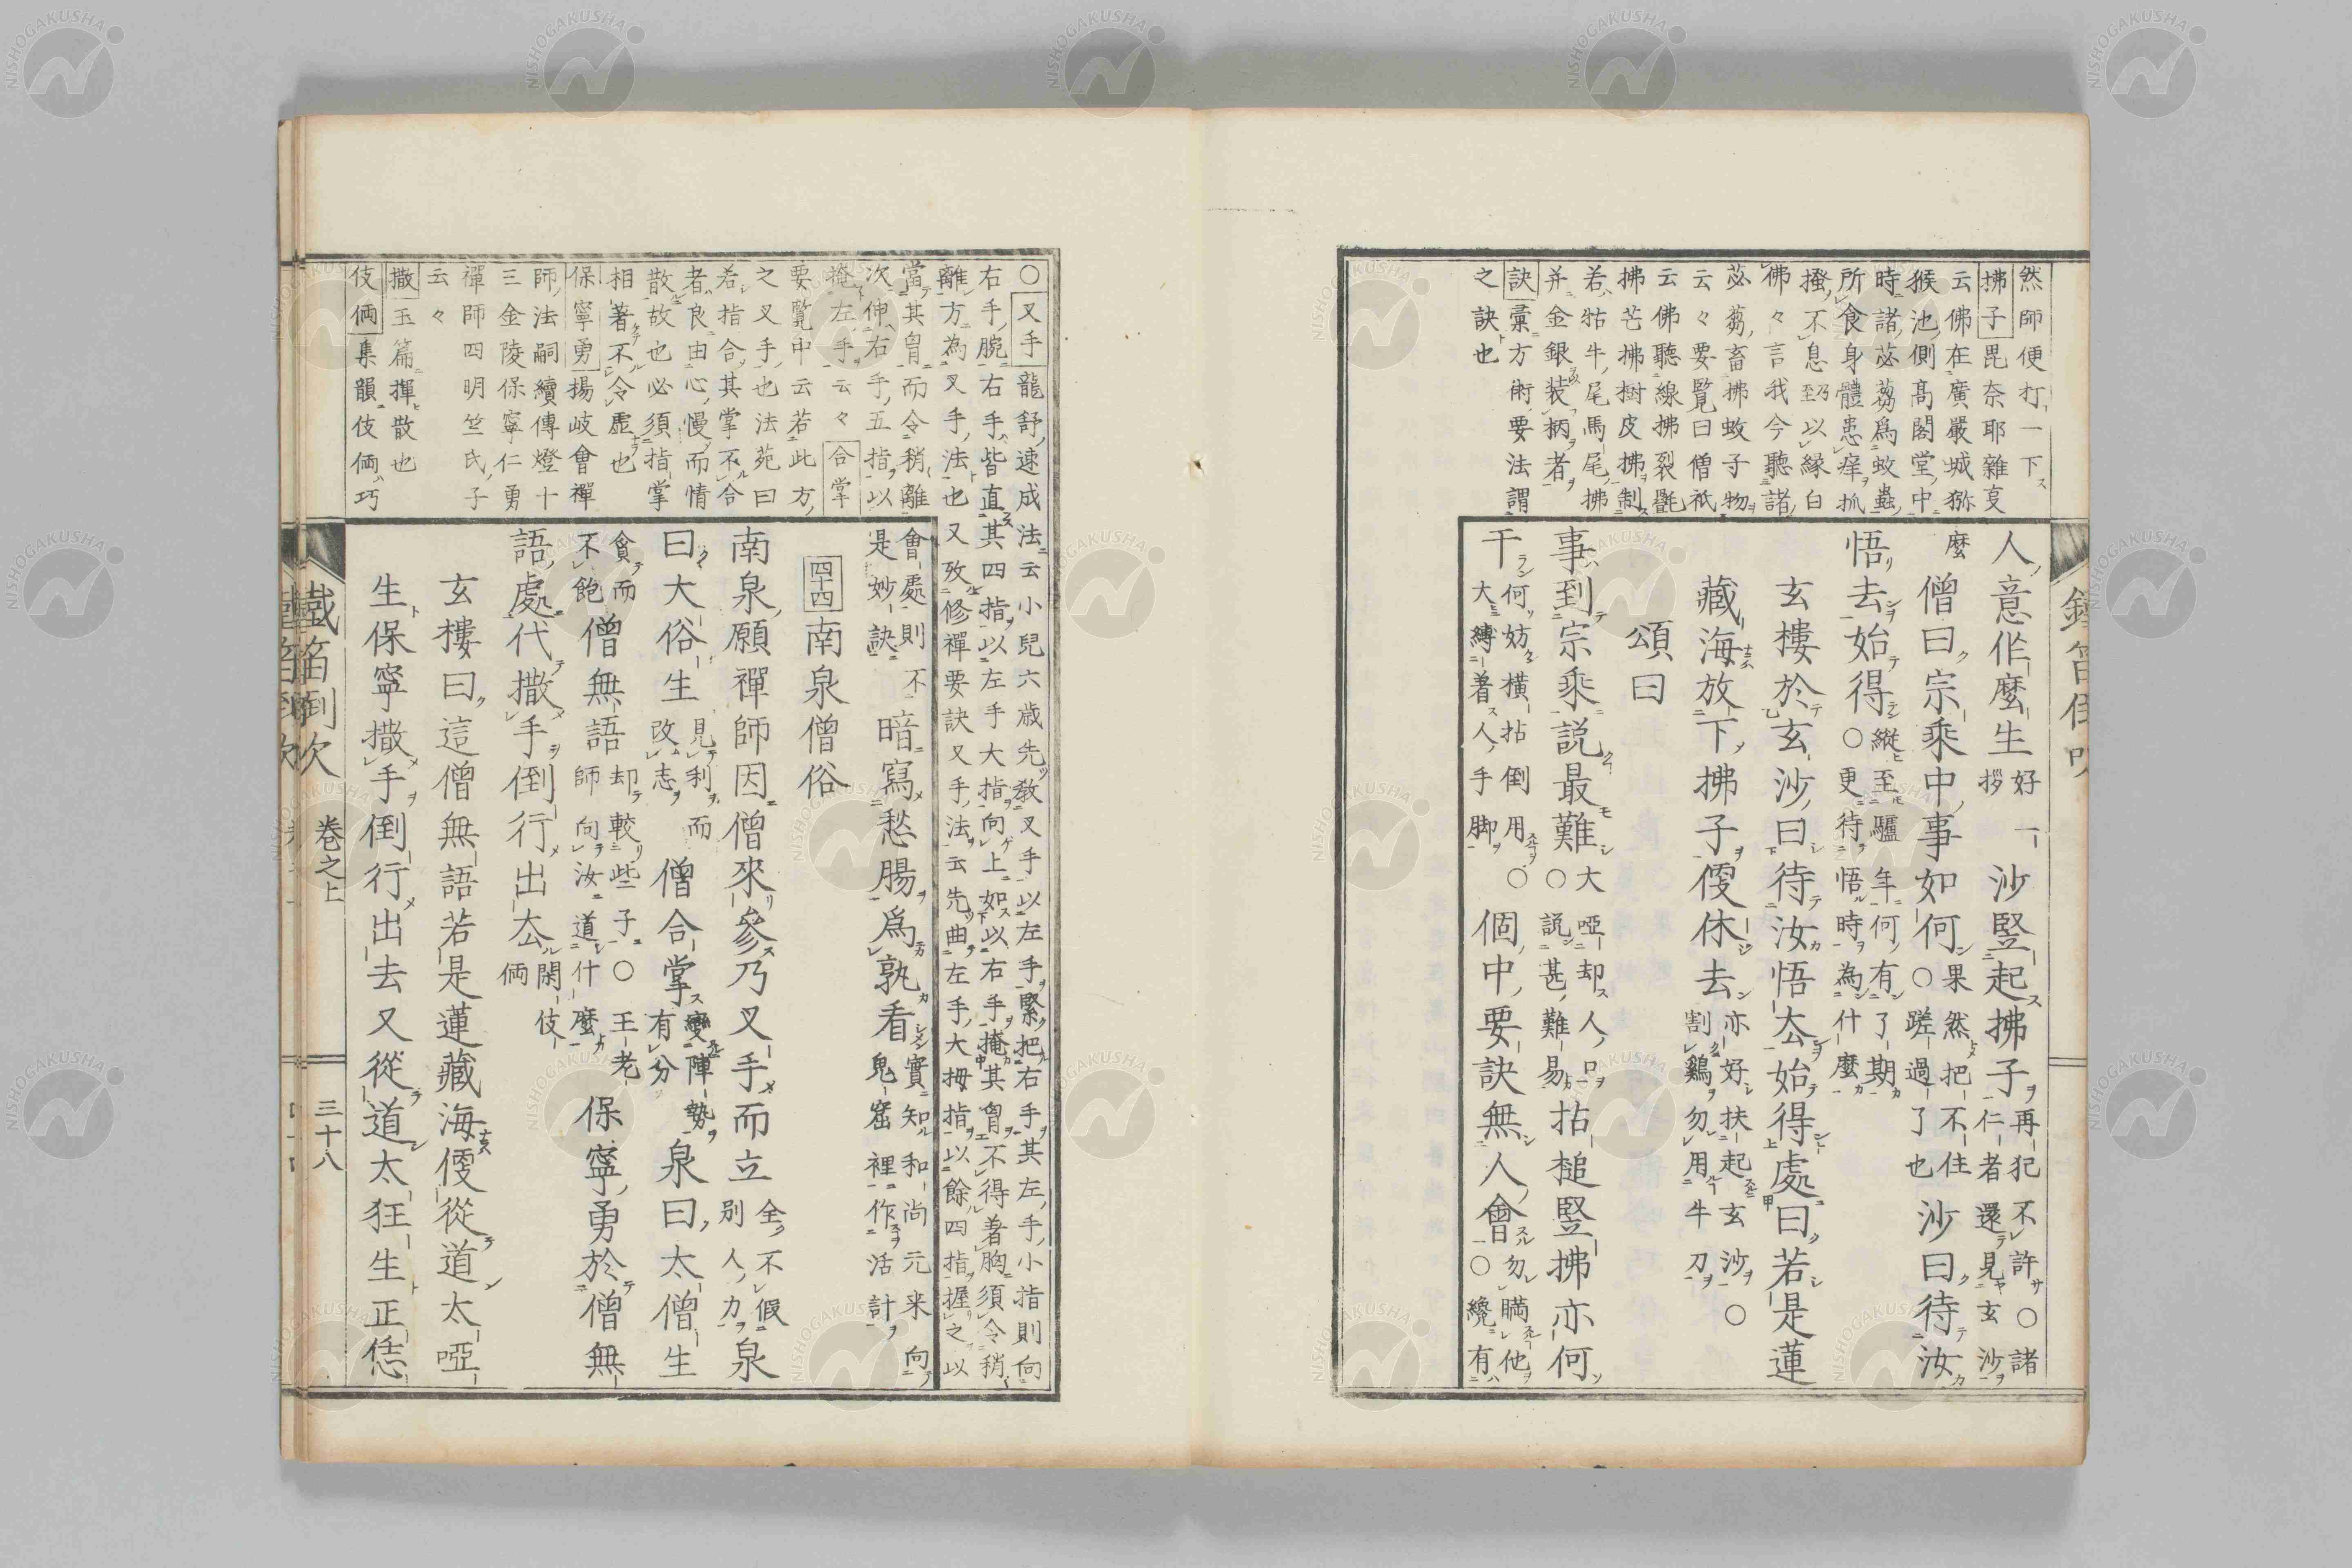 然師便打一下
拂子毘奈耶雜亊
云佛在廣嚴城獼
猴池側髙閣堂中
時諸苾蒭爲蚊蟲
所食身體患痒抓
搔不息至以縁白
佛々言我今聽諸
苾蒭畜拂蚊子物
云々要覧曰僧祇
云佛聽線拂裂㲲
拂芒拂樹皮拂制
若牯牛尾馬尾拂
并金銀装柄者
訣彙方術要法謂
之訣也
人意作麼生好拶一沙竪起拂子再犯不許○諸仁者還見玄沙
麼僧曰宗乘中事如何○果然把不住蹉過了也沙曰待汝
悟去始得○縱至驢年何有了期更待悟時為什麼
玄樓於玄沙曰待汝悟去始得處曰若是蓮
藏海放下拂子便休去亦好扶起玄沙○割鷄勿用牛刀
頌曰
事到宗乘説最難○大啞却人口説甚難易拈槌竪拂亦何
干何妨横拈倒用○大縛着人手脚個中要訣無人會○勿瞞他纔有
○又手龍舒速成法云小兒六歳先教叉手以左手緊把右手其左手小指則向
右手腕右手皆直其四指以左手大指向上如以右手掩其胷不得着胸須令稍
離方為叉手法也又攷修禪要訣又手法云先曲左手大拇指以餘四指握之以
當其胷而令稍離
次伸右手五指以
掩左手云々合掌
要覧中云若此方
之叉手也法苑曰
若指合其掌不合
者良由心慢而情
散故也必須指掌
相著不令虚也
保寧勇揚岐會禪
師法嗣續傳燈十
三金陵保寧仁勇
禪師四明竺氏子
云々
撒玉篇揮散也
伎倆集韻伎倆巧
會處則不是妙訣暗寫愁腸爲孰看實知和尚元来向鬼窟裡作活計
四十四南泉僧俗
南泉願禪師因僧來參乃叉手而立全不假別人力泉
曰大俗生見利而改志僧合掌變陣勢有分泉曰太僧生
貪而不飽僧無語却較些子○師向汝道什麼王老保寧勇於僧無
語處代撒手倒行出去閑伎倆
玄樓曰這僧無語若是蓮藏海便從道太啞
生保寧撒手倒行出去又從道太狂生正恁
鐵笛倒吹
卷之上
三十八